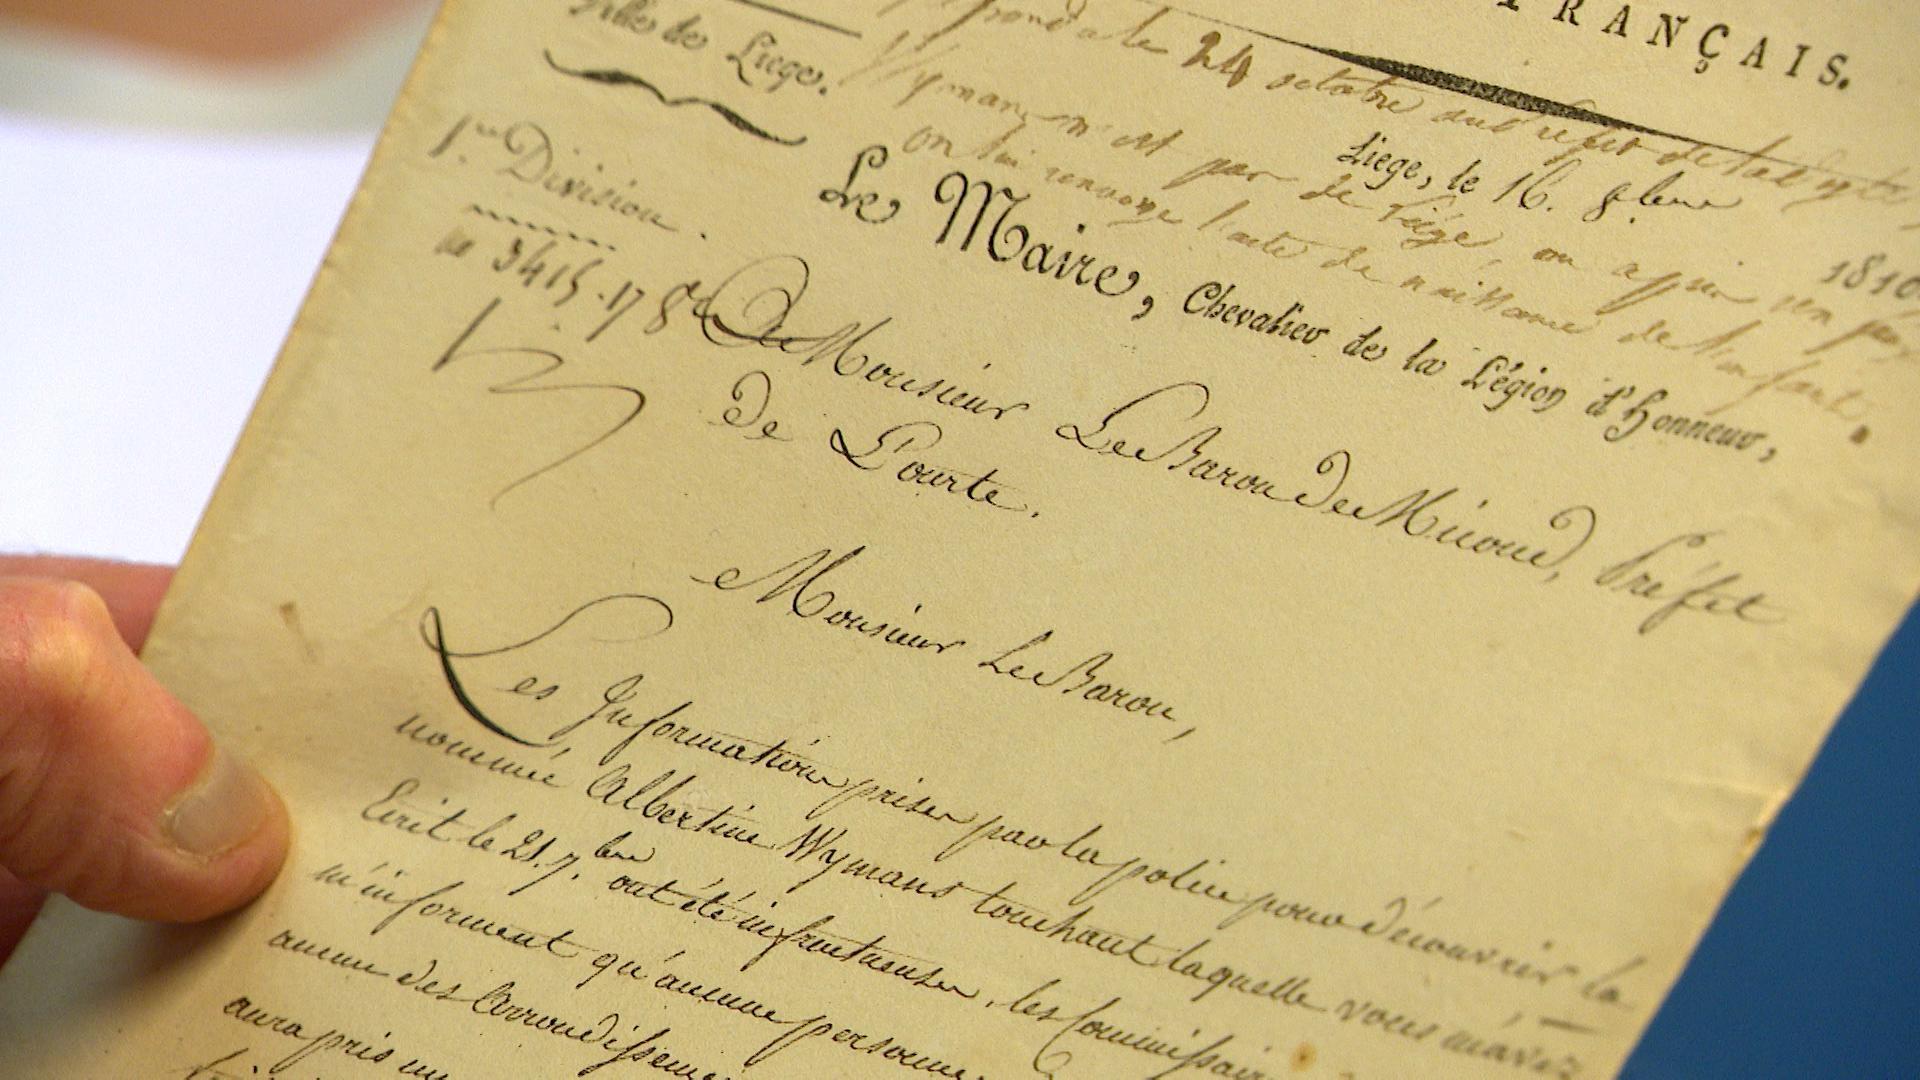 FRANÇAIS.
Ville de Liege.
24 octobre
Wymans n'est pas de Liége, on
on lui renvoye l'acte de naissance de l'enfant.
1re Division.
Liege, le 16. 8bre 1810.
Le Maire, Chevalier de la Légion d'Honneur,
n° 3415-178
A Monsieur Le Baron De Micoud, Préfet
De L'ourte.
Monsieur Le Baron,
Les Informations prises par la police pour découvrir la
nommée Albertine Wymans touchant laquelle vous m'avez
Ecrit le 21. 7.bre ont été infructueuses, les Commissair
m'informent qu'aucune personne
aucun des arrondisseme
aura pris